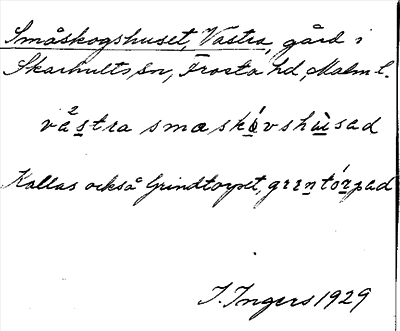 Småskogshuset, Västra, gård i
Skarhults sn, Frosta hd, Malm l.
våstra smæskóvshùsad
Kallas också Grindtorpet, grentórpad
I. Ingers 1929